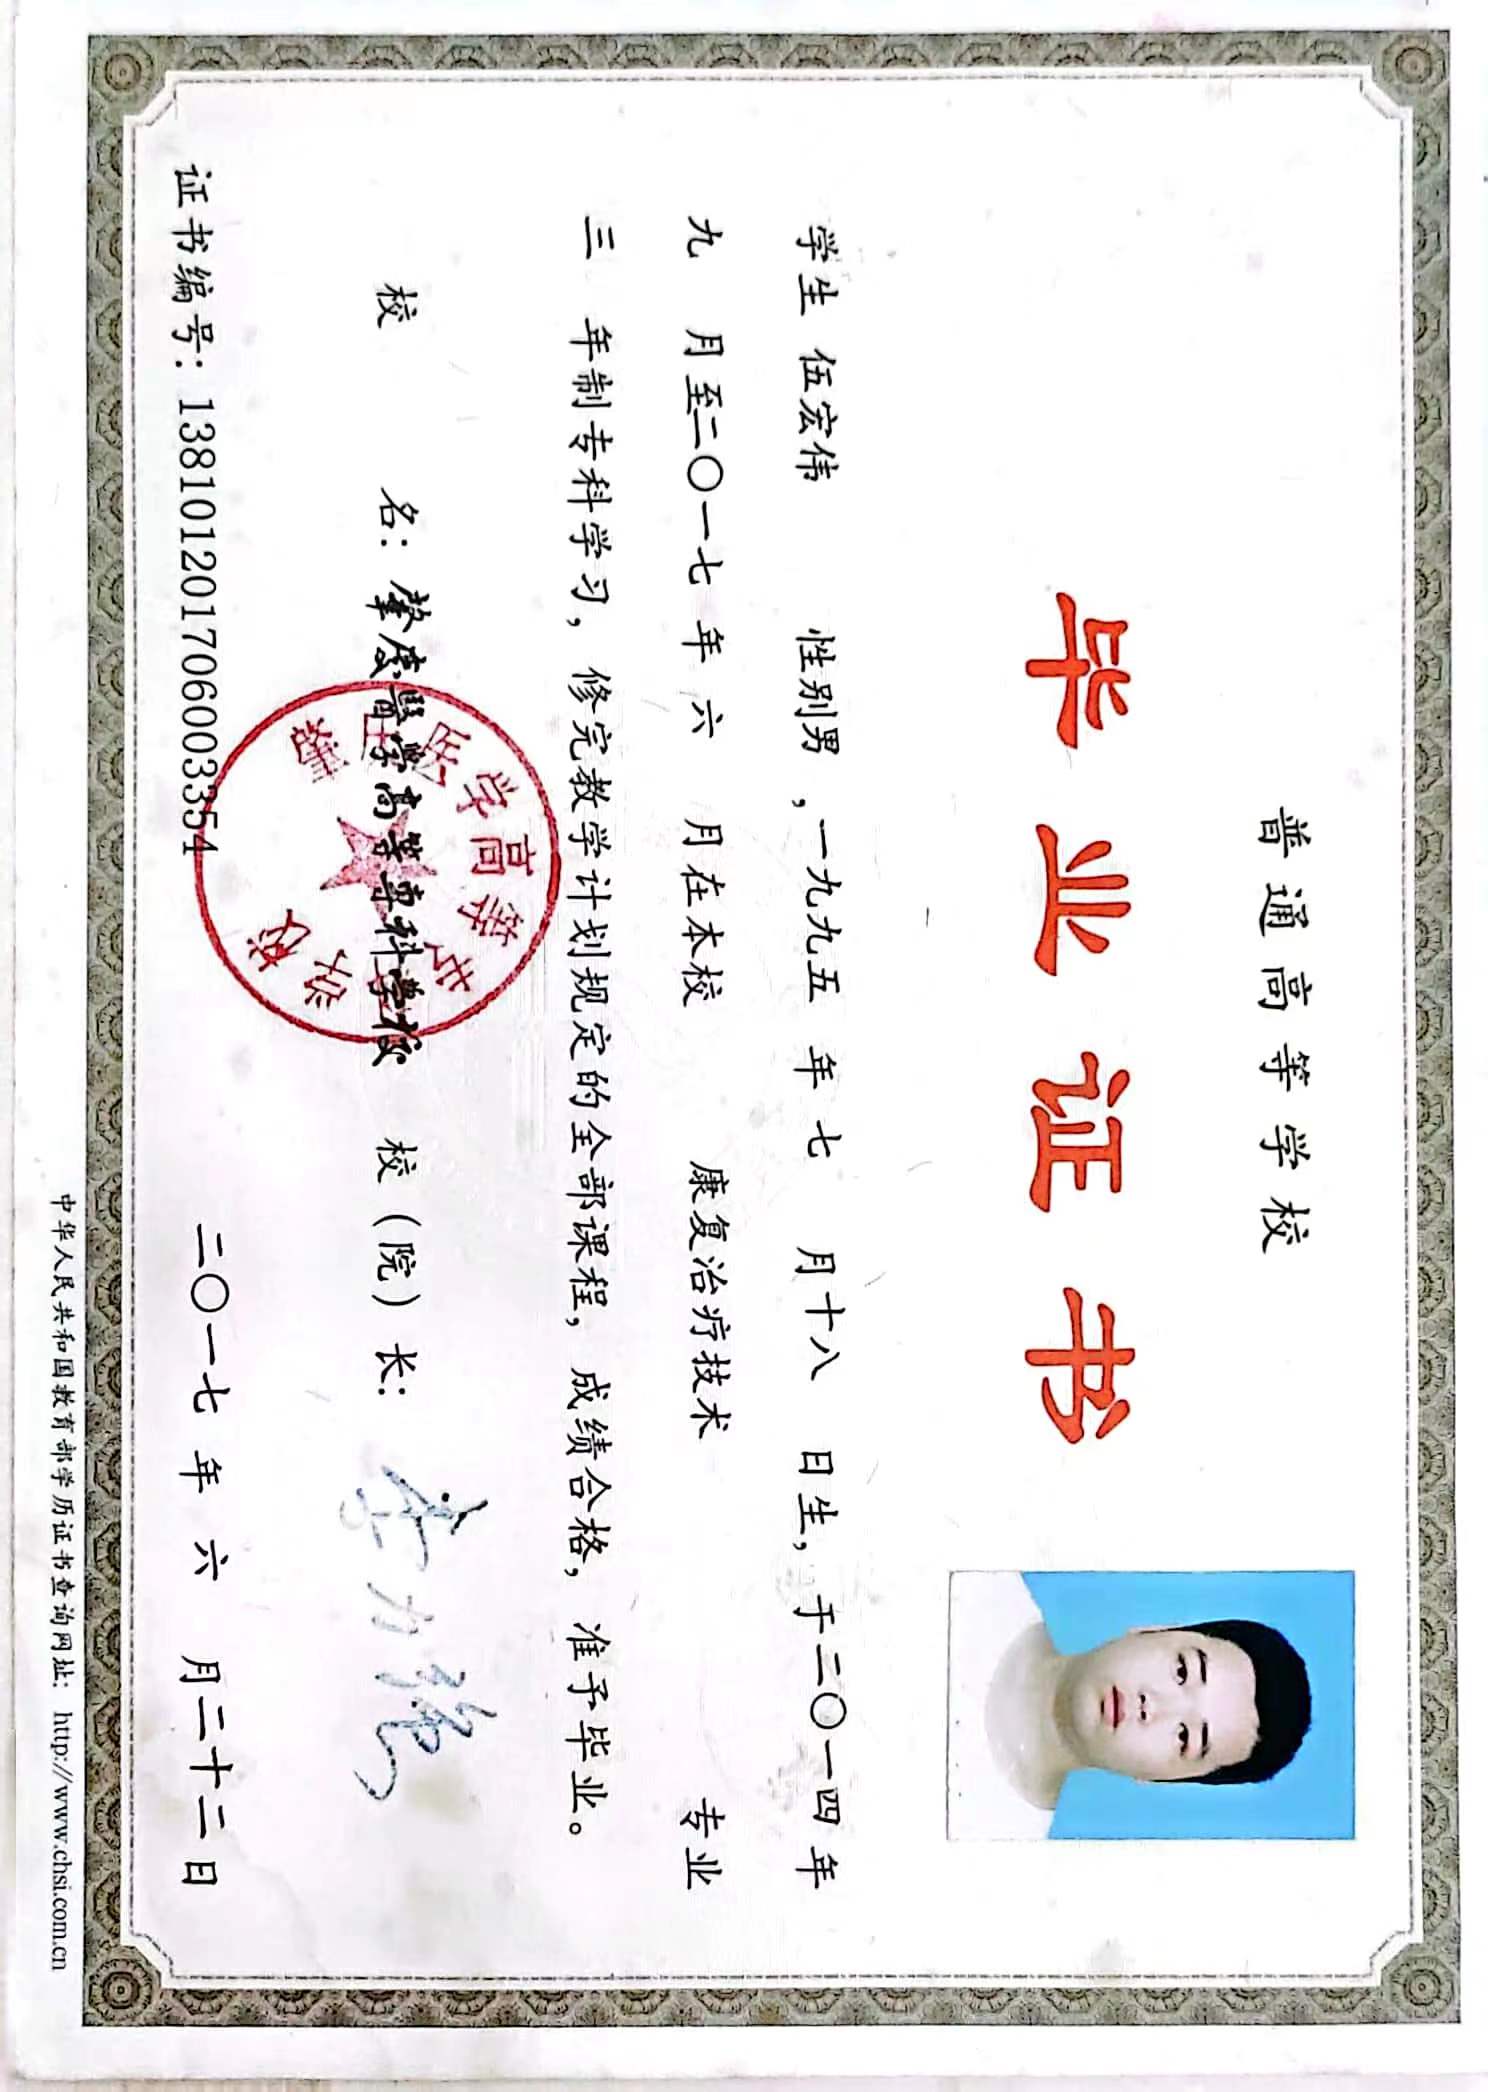 普通高等学校
毕业证书
学生 伍宏伟 性别男，一九九五 年 七 月十八 日生，于二〇一四 年
九 月至二〇一七 年 六 月在本校 康复治疗技术 专业
三 年制专科学习，修完教学计划规定的全部课程，成绩合格，准予毕业。
校 名：肇慶醫學高等專科學校 校（院）长：
肇庆医学高等专科学校
证书编号：138101201706003354 二〇一七 年 六 月二十二日
中华人民共和国教育部学历证书查询网址：http://www.chsi.com.cn